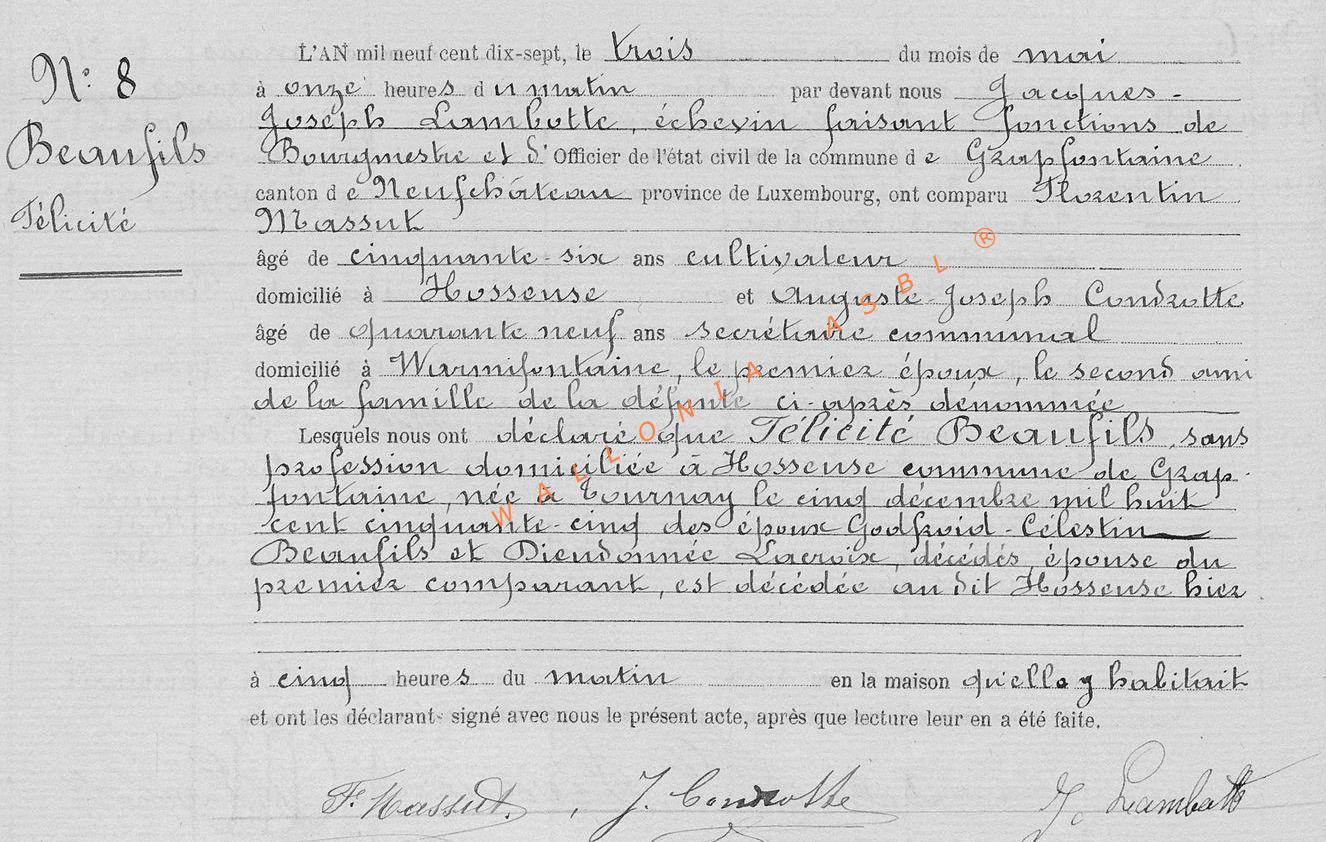 N° 8
Beaufils
Félicité
L'AN mil neuf cent dix-sept, le trois du mois de mai
à onze heures du matin par devant nous Jacques-
Joseph Lambotte, échevin faisant fonctions de
Bourgmestre et d'Officier de l'état civil de la commune de Grapfontaine
canton de Neufchâteau province de Luxembourg, ont comparu Florentin
Massut
âgé de cinquante-six ans cultivateur
domicilié à Hosseuse et Auguste-Joseph Condrotte
âgé de quarante neuf ans secrétaire communal
domicilié à Warmifontaine, le premier époux, le second ami
de la famille de la défunte ci-après dénommée
Lesquels nous ont déclaré que Félicité Beaufils, sans
profession domiciliée à Hosseuse commune de Grap-
fontaine, née à Tournay le cinq décembre mil huit
cent cinquante-cinq des époux Godfroid-Célestin
Beaufils et Dieudonnée Lacroix, décédés, épouse du
premier comparant, est décédée au dit Hosseuse hier
à cinq heures du matin en la maison qu'elle y habitait
et ont les déclarants signé avec nous le présent acte, après que lecture leur en a été faite.
F. Massut, J. Condrotte J. Lambotte
WALLONIA ASBL ®